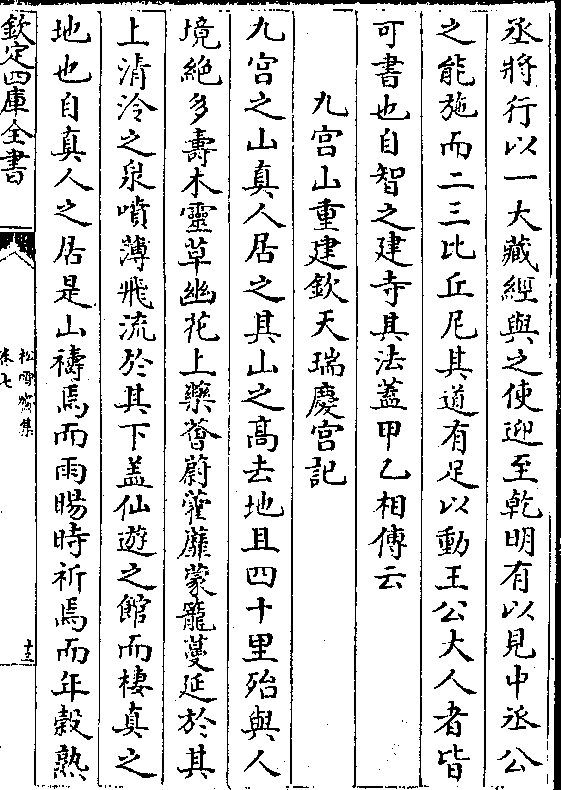 丞將行以一大藏經與之使迎至乾明有以見中丞公
之能施而二三比丘尼其道有足以動王公大人者皆
可書也自智之建寺其法蓋甲乙相傳云
九宫山重建欽天瑞慶宫記
九宫之山真人居之其山之高去地且四十里殆與人
境絶多壽木靈草幽花上藥薈蔚藿靡蒙籠蔓延於其
上清泠之泉噴薄飛流於其下蓋仙遊之館而棲真之
地也自真人之居是山禱焉而雨暘時祈焉而年穀熟
欽定四庫全書
松雪齋集
卷七
十三